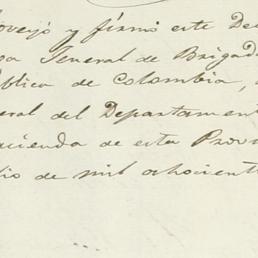 proveyó y firmó este De
Jeneral de Brigada
ública de Colombia,
eral del Departament
cienda de esta Provi
io de mil ochocient